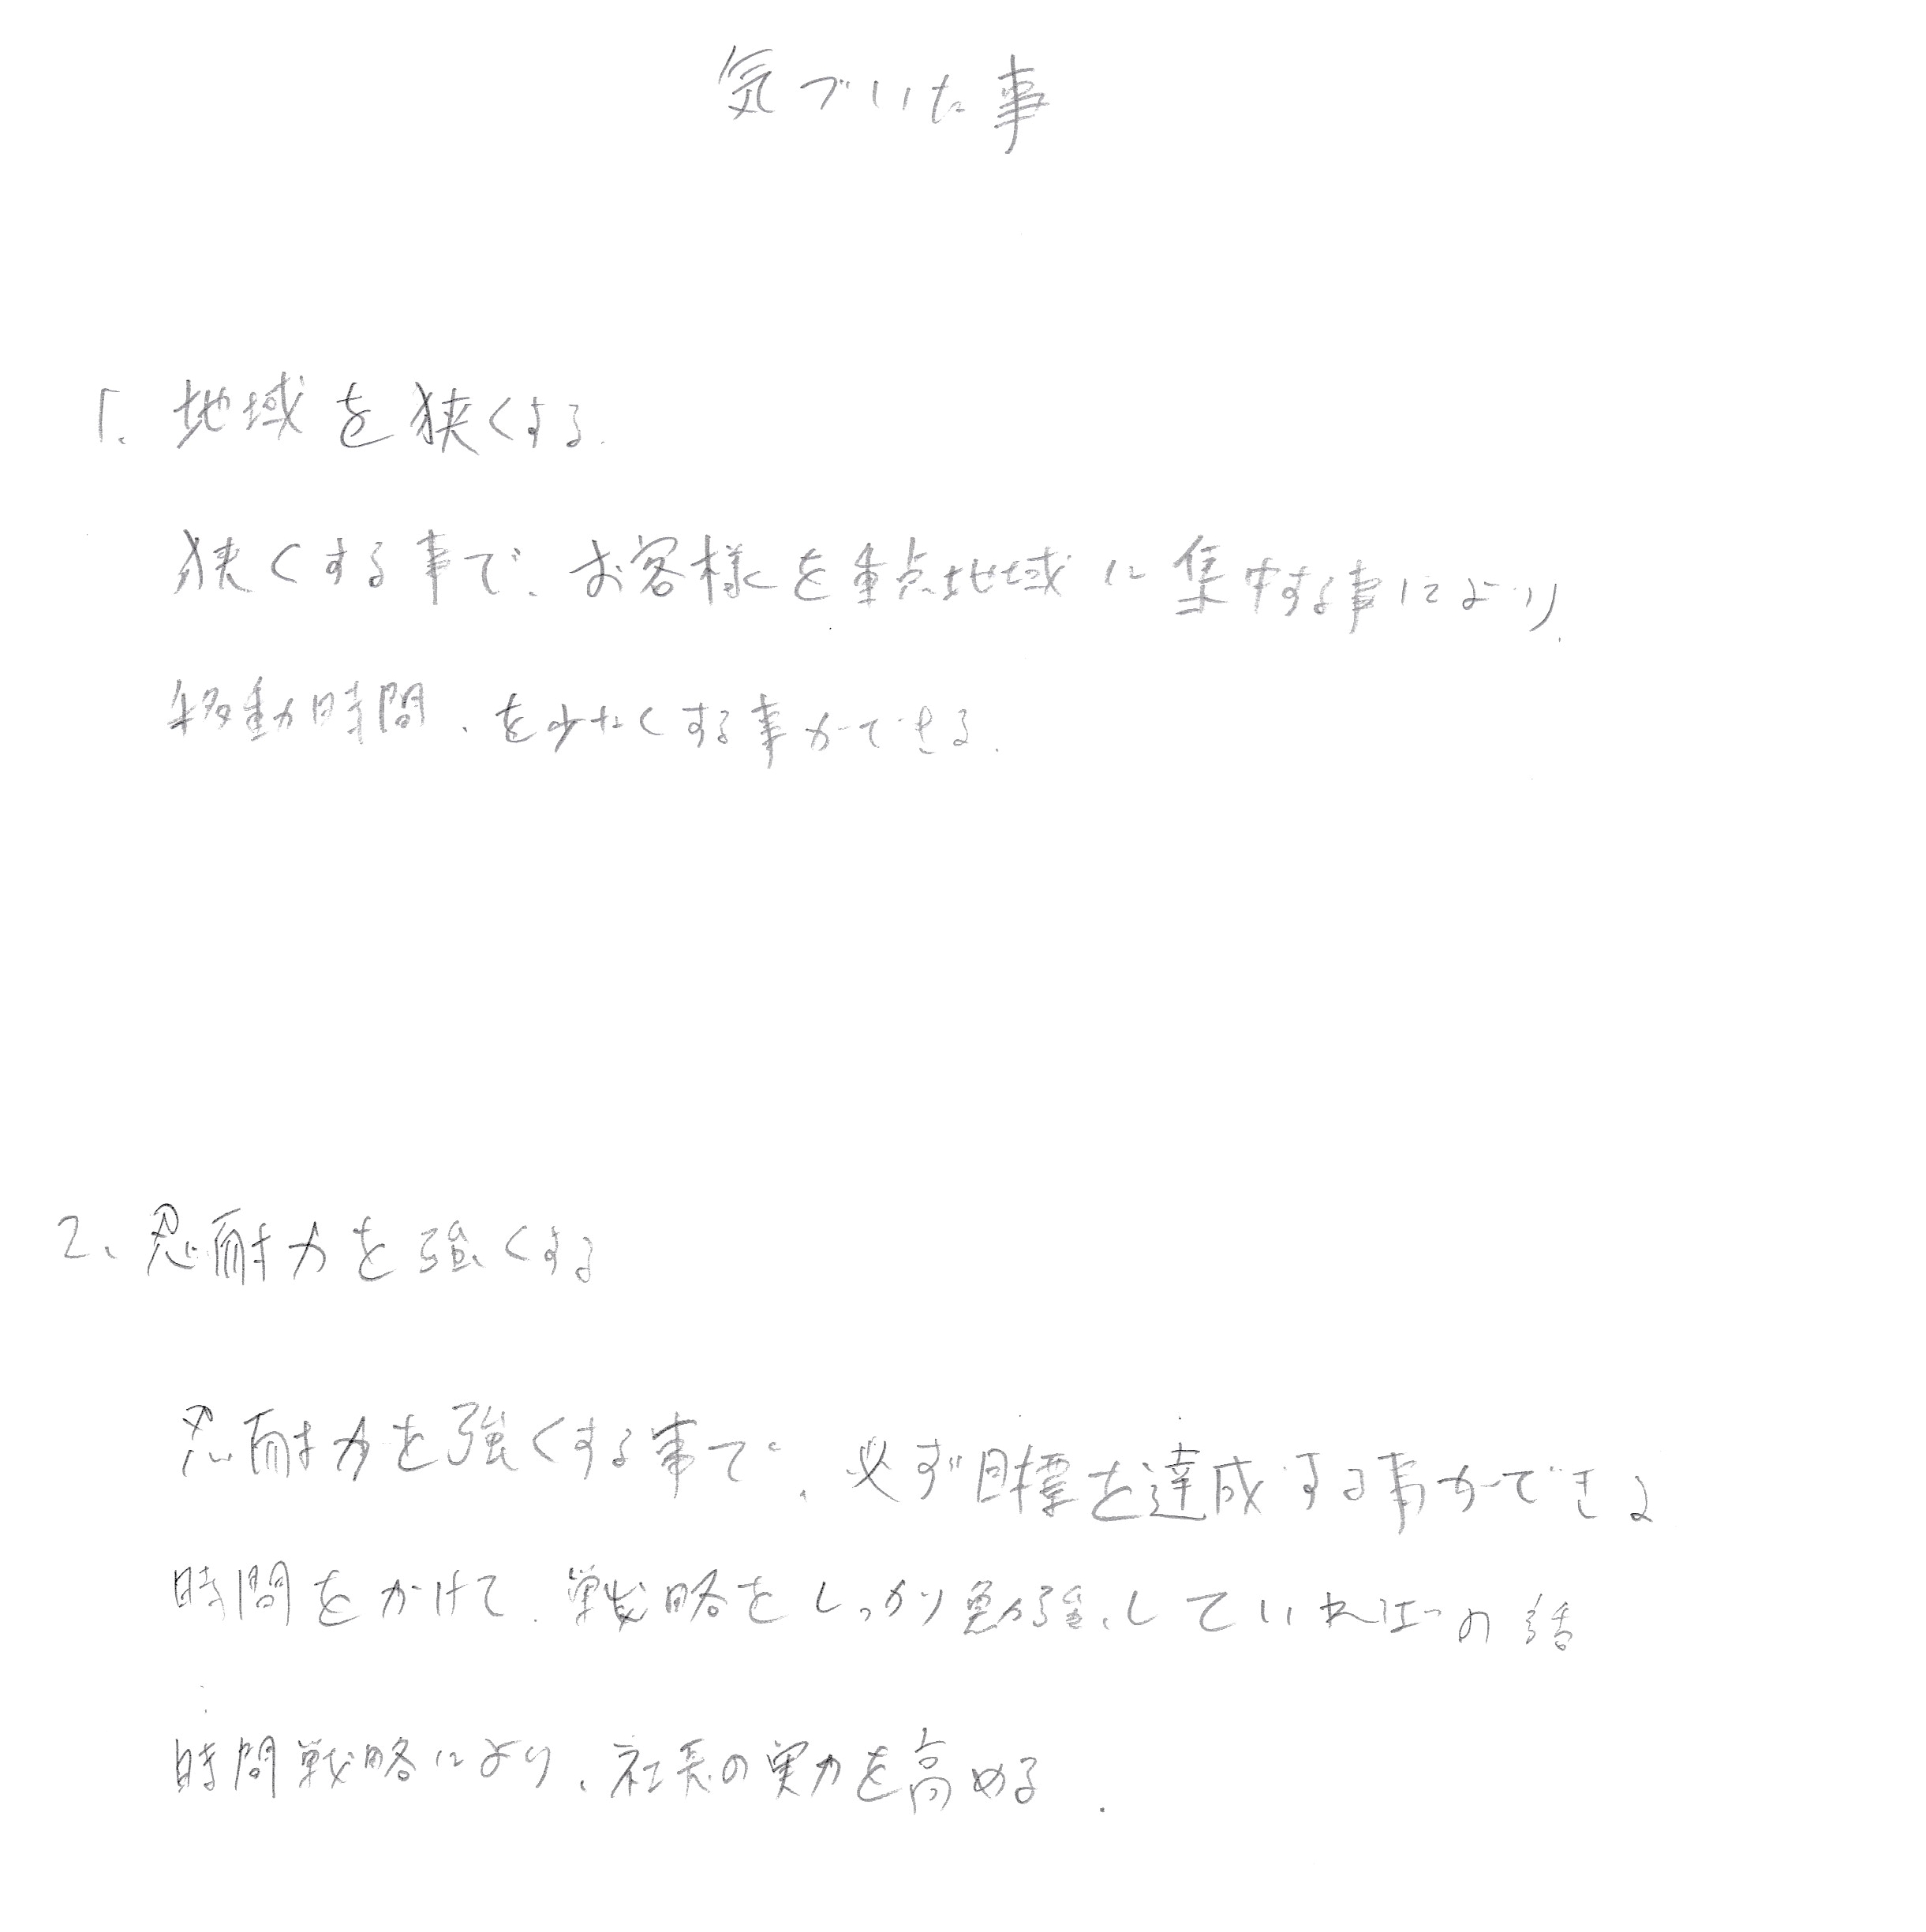 気づいた事
1. 地域を狭くする.
狭くする事で、お客様を重点地域に集中する事により、
移動時間、を少なくする事ができる.
2、忍耐力を強くする
忍耐力を強くする事で、必ず目標を達成する事ができる
時間をかけて、戦略をしっかり勉強していればの話
時間戦略により、社長の実力を高める.